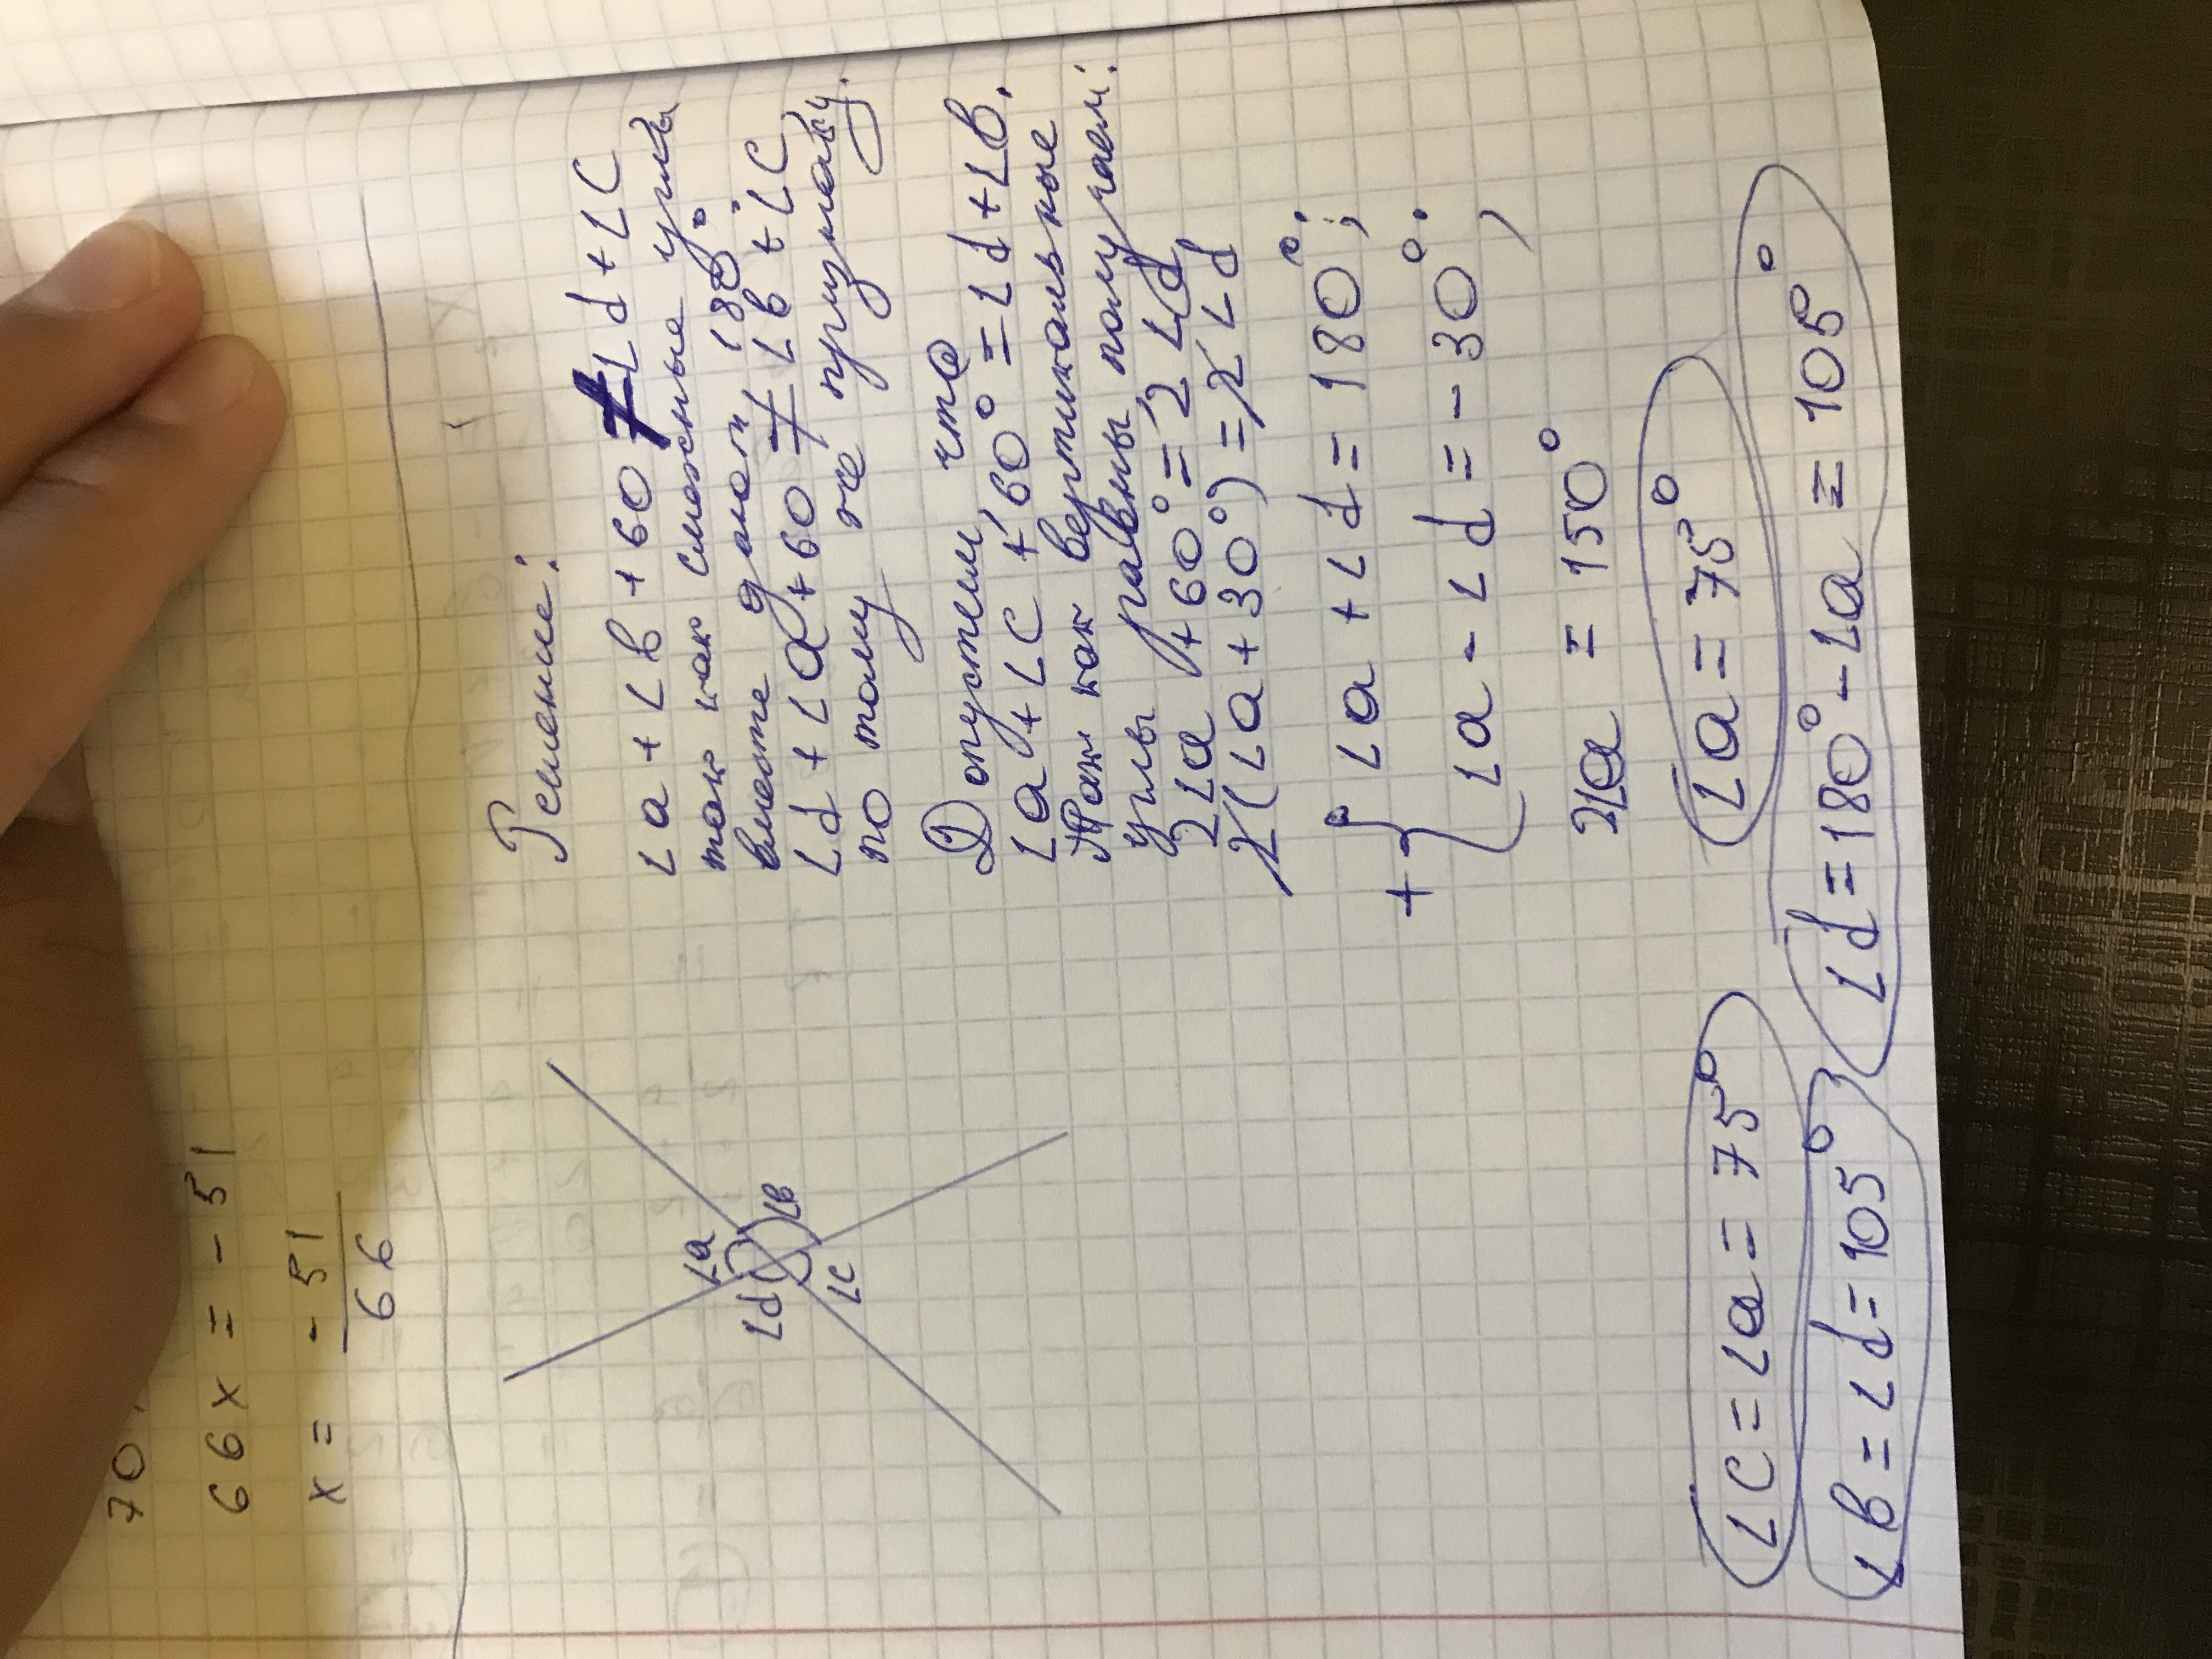 70
66x = - 51
x = - 51
66
Решение:
∠a + ∠b + 60 ≠ ∠d + ∠c
так как смежные углы
вместе дают 180°.
∠d + ∠a + 60 ≠ ∠b + ∠c
по тому же признаку.
Допустим, что
∠a + ∠c + 60° = ∠d + ∠b.
Так как вертикальные
углы равны, получаем:
2∠a + 60° = 2∠d
2(∠a + 30°) = 2∠d
+ { ∠a + ∠d = 180°;
∠a - ∠d = - 30°;
2∠a = 150°
∠a = 75°
∠d = 180° - ∠a = 105°
∠a
∠b
∠d
∠c
∠c = ∠a = 75°
∠b = ∠d = 105°